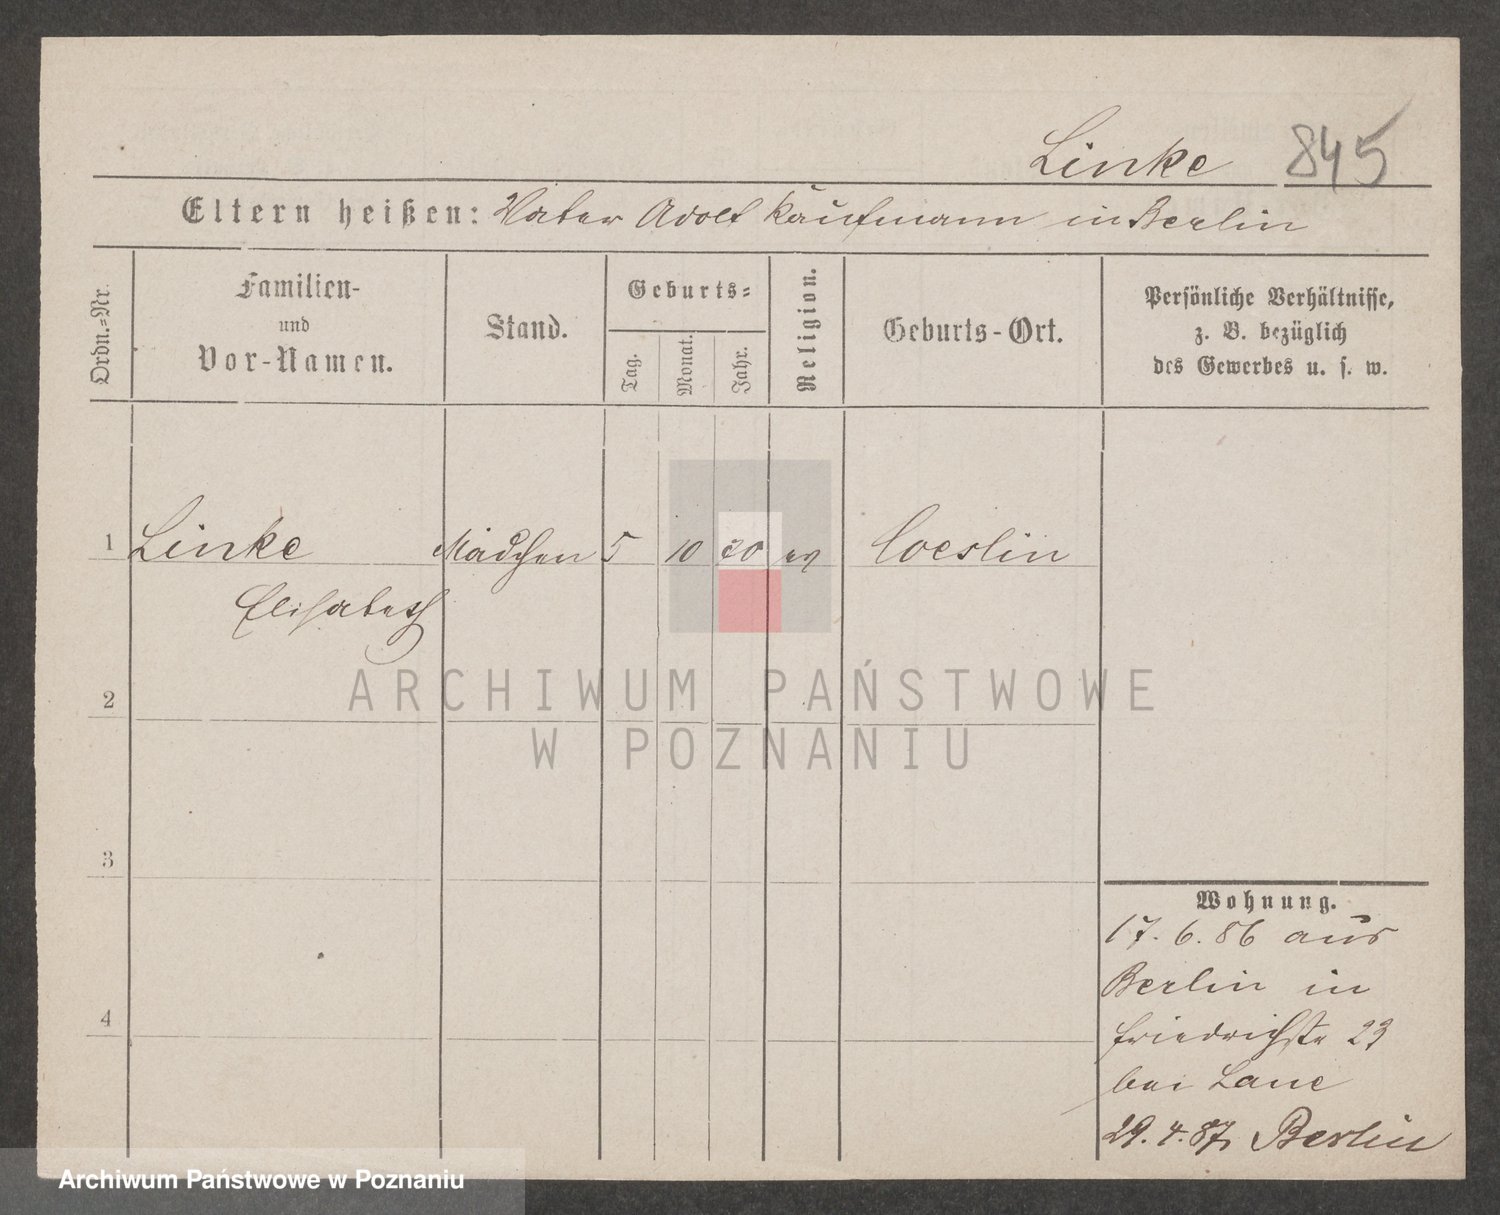 Linke 845
Eltern heißen: Vater Adolf Kaufmann in Berlin
Ordn.=Nr.
Familien-
und
Vor-Namen.
Stand.
Geburts=
Tag.
Monat.
Jahr.
Religion.
Geburts-Ort.
Persönliche Verhältnisse,
z. B. bezüglich
des Gewerbes u. s. w.
1 Linke Mädchen 5 10 70 ev Coeslin
Elisabeth
2
3
4
Wohnung.
17. 6. 86 aus
Berlin in
Friedrichstr 23
bei
29. 4. 87 Berlin
ARCHIWUM PAŃSTWOWE
W POZNANIU
Archiwum Państwowe w Poznaniu